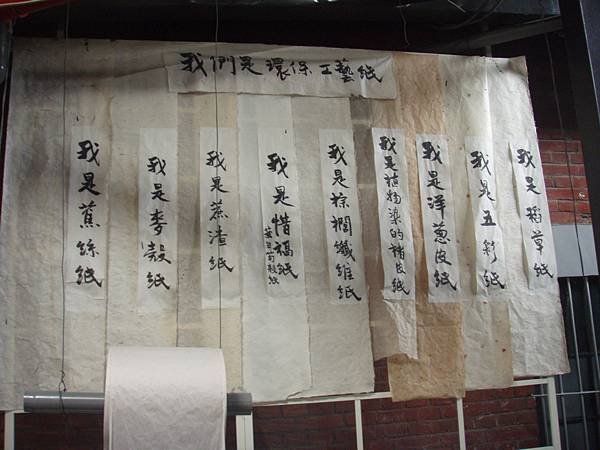 我們是環保工藝紙
我是稻草紙
我是五彩紙
我是洋蔥皮紙
我是植物染的楮皮紙
我是棕櫚纖維紙
我是惜福紙
我是蔗渣紙
我是麥殼紙
我是蕉絲紙